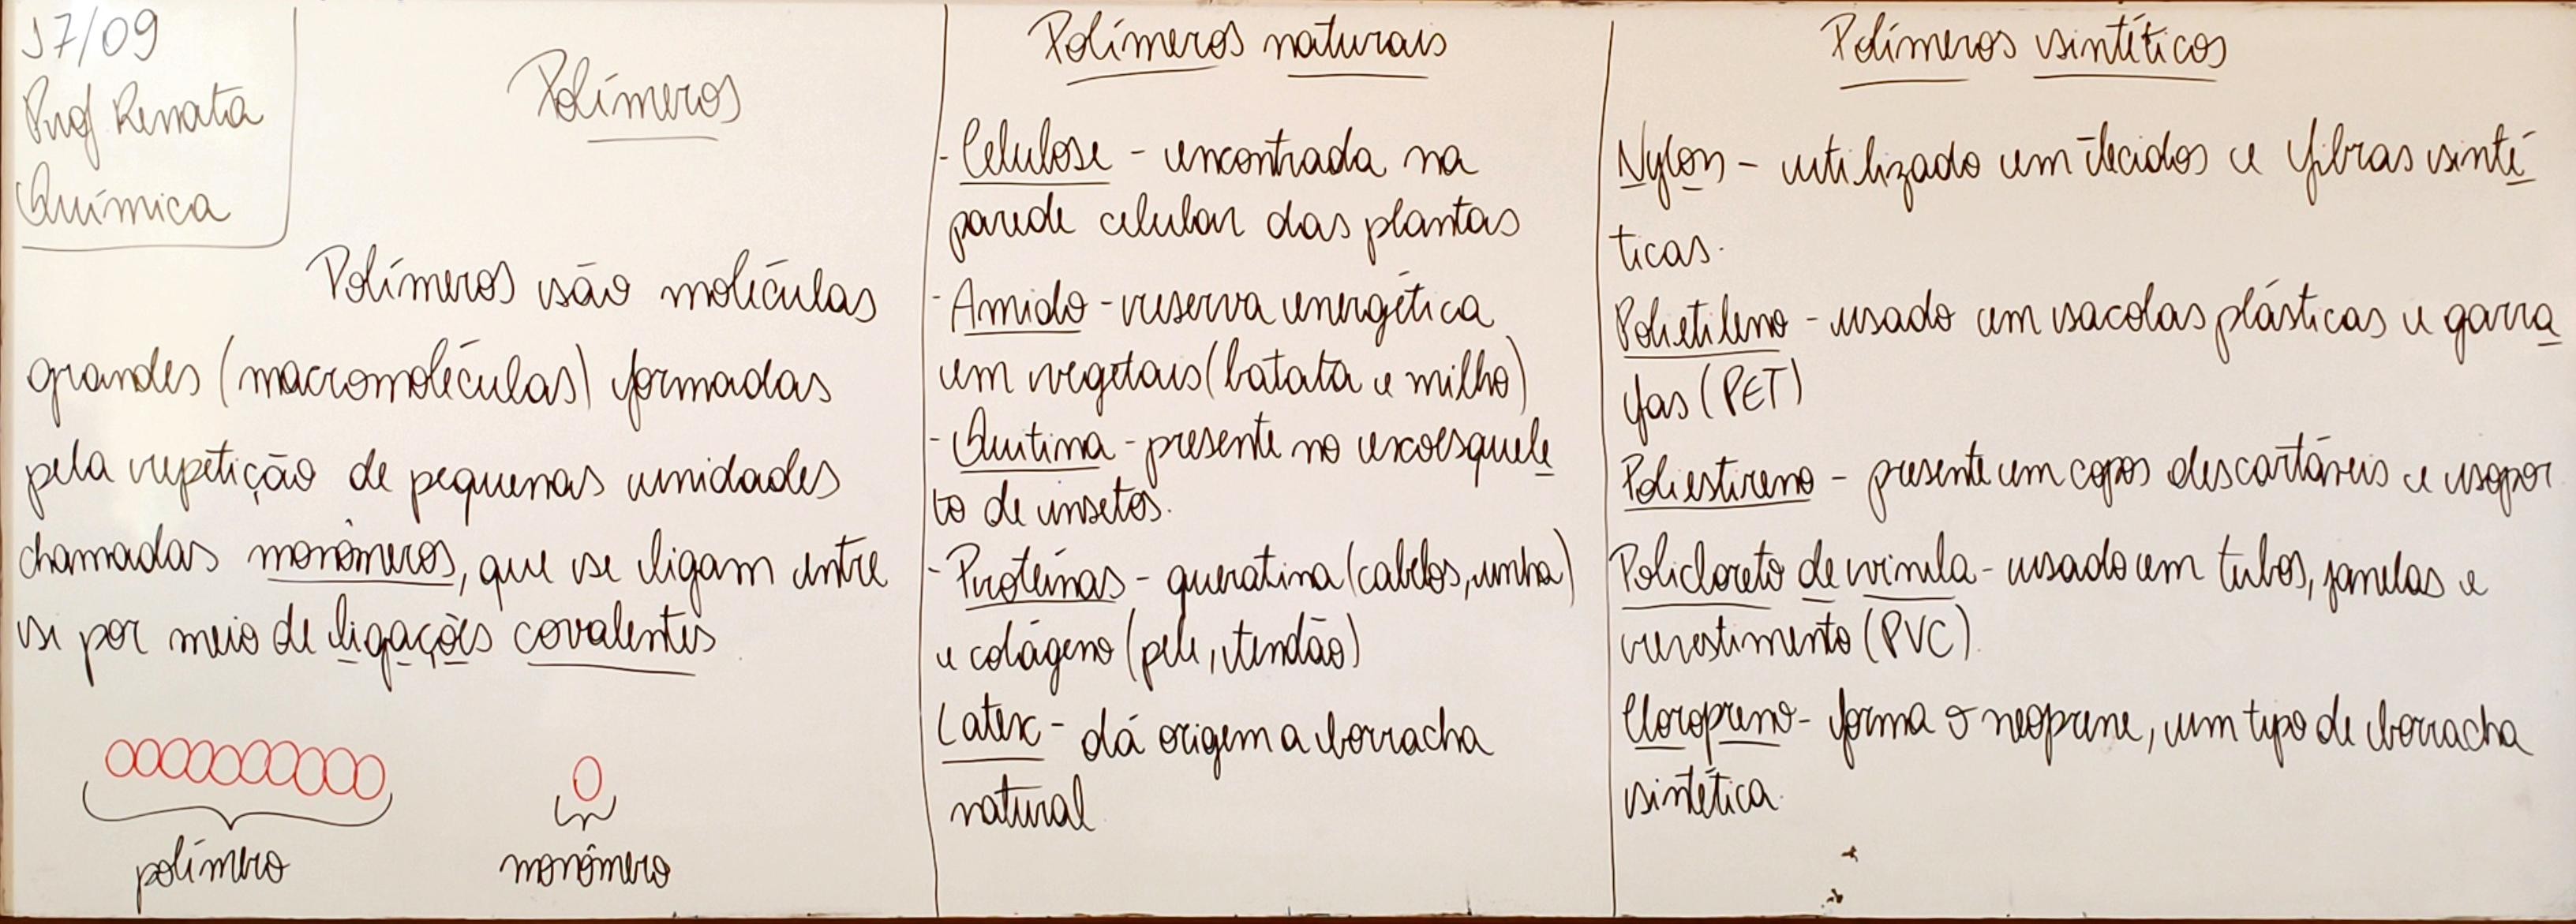 17/09
Prof Renata
Química
Polímeros
Polímeros são moléculas
grandes (macromoléculas) formadas
pela repetição de pequenas unidades
chamadas monômeros, que se ligam entre
si por meio de ligações covalentes.
polímero
monômero
Polímeros naturais
- Celulose - encontrada na
parede celular das plantas
- Amido - reserva energética
em vegetais (batata e milho)
- Quitina - presente no exoesquele
to de insetos.
- Proteínas - queratina (cabelos, unha)
e colágeno (pele, tendão)
Latex - dá origem a borracha
natural
Polímeros sintéticos
Nylon - utilizado em tecidos e fibras sinté
ticas.
Polietileno - usado em sacolas plásticas e garra
fas (PET)
Poliestireno - presente em copos descartáveis e isopor
Policloreto de vinila - usado em tubos, janelas e
revestimento (PVC).
Cloropreno - forma o neoprene, um tipo de borracha
sintética.